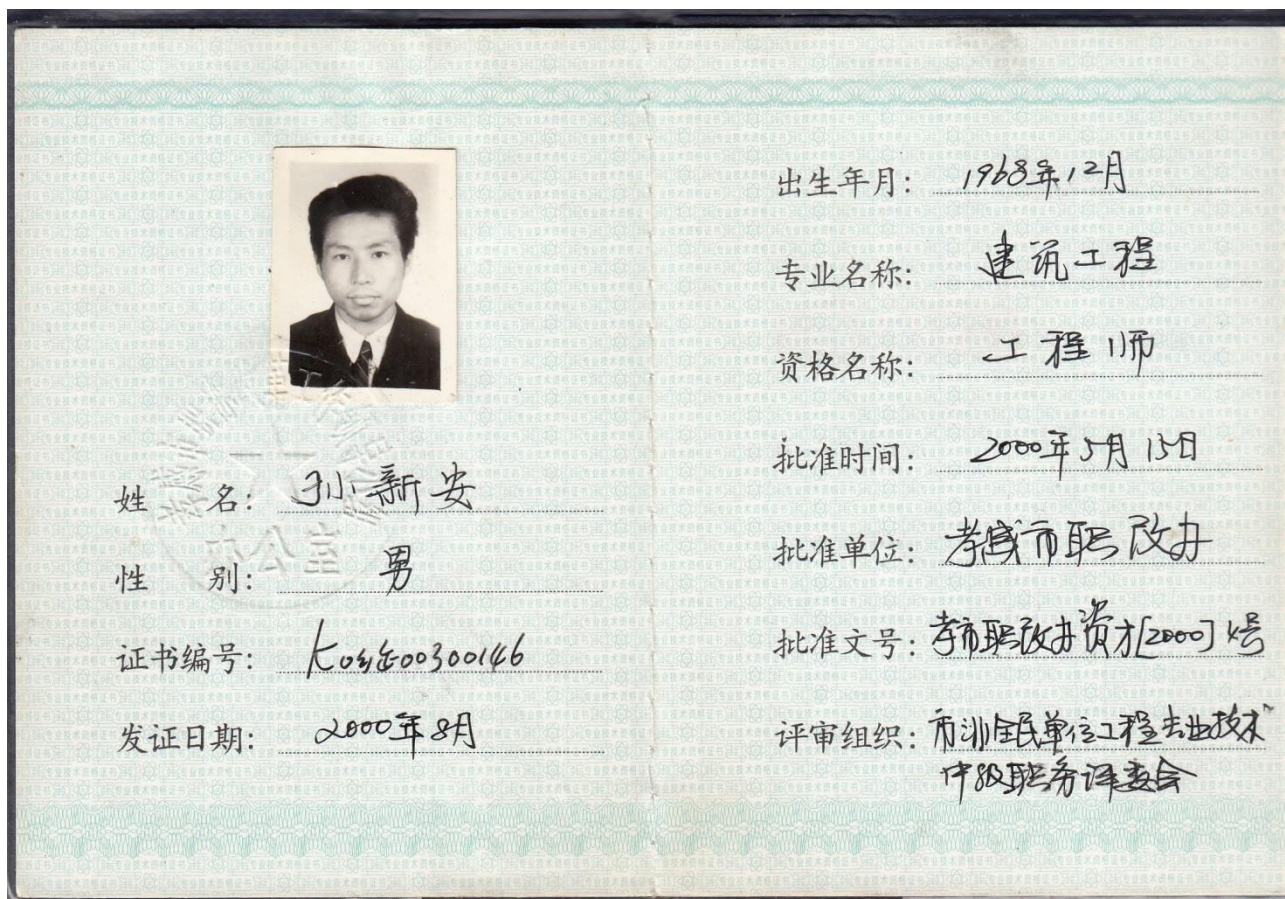 姓 名: 孙新安
性 别: 男
证书编号:
发证日期: 2000年8月
出生年月: 1968年12月
专业名称: 建筑工程
资格名称: 工程师
批准时间: 2000年5月15日
批准单位: 孝感市职改办
批准文号: 孝市职改办资才[2000]4号
评审组织: 市非全民单位工程专业技术
中级职务评委会
办公室